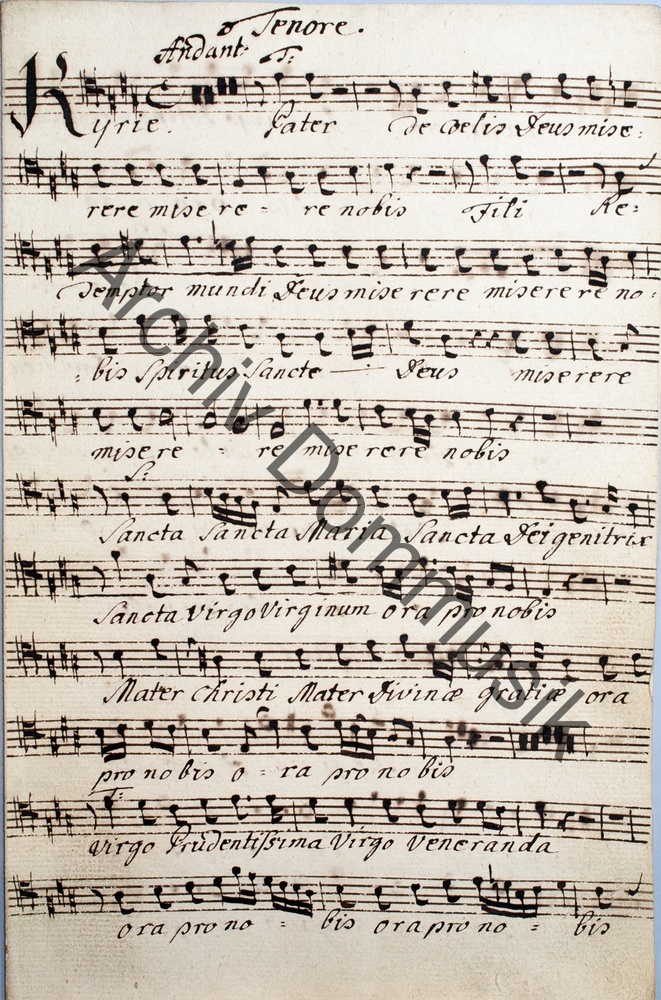 Tenore.
Andant: T:
Kyrie. Pater de coelis Deus mise:
rere mise re = re nobis Fili Re:
demptor mundi Deus mise rere miserere no =
= bis Spiritus Sancte Deus miserere
mise re = re miserere nobis
S:
Sancta Sancta Maria Sancta Dei genitrix
Sancta Virgo Virginum ora pro nobis
Mater Christi Mater Divinæ gratiæ ora
pro nobis o = ra pro nobis
T:
Virgo Prudentissima Virgo Veneranda
ora pro no = bis ora pro no = bis
Archiv Dommusik